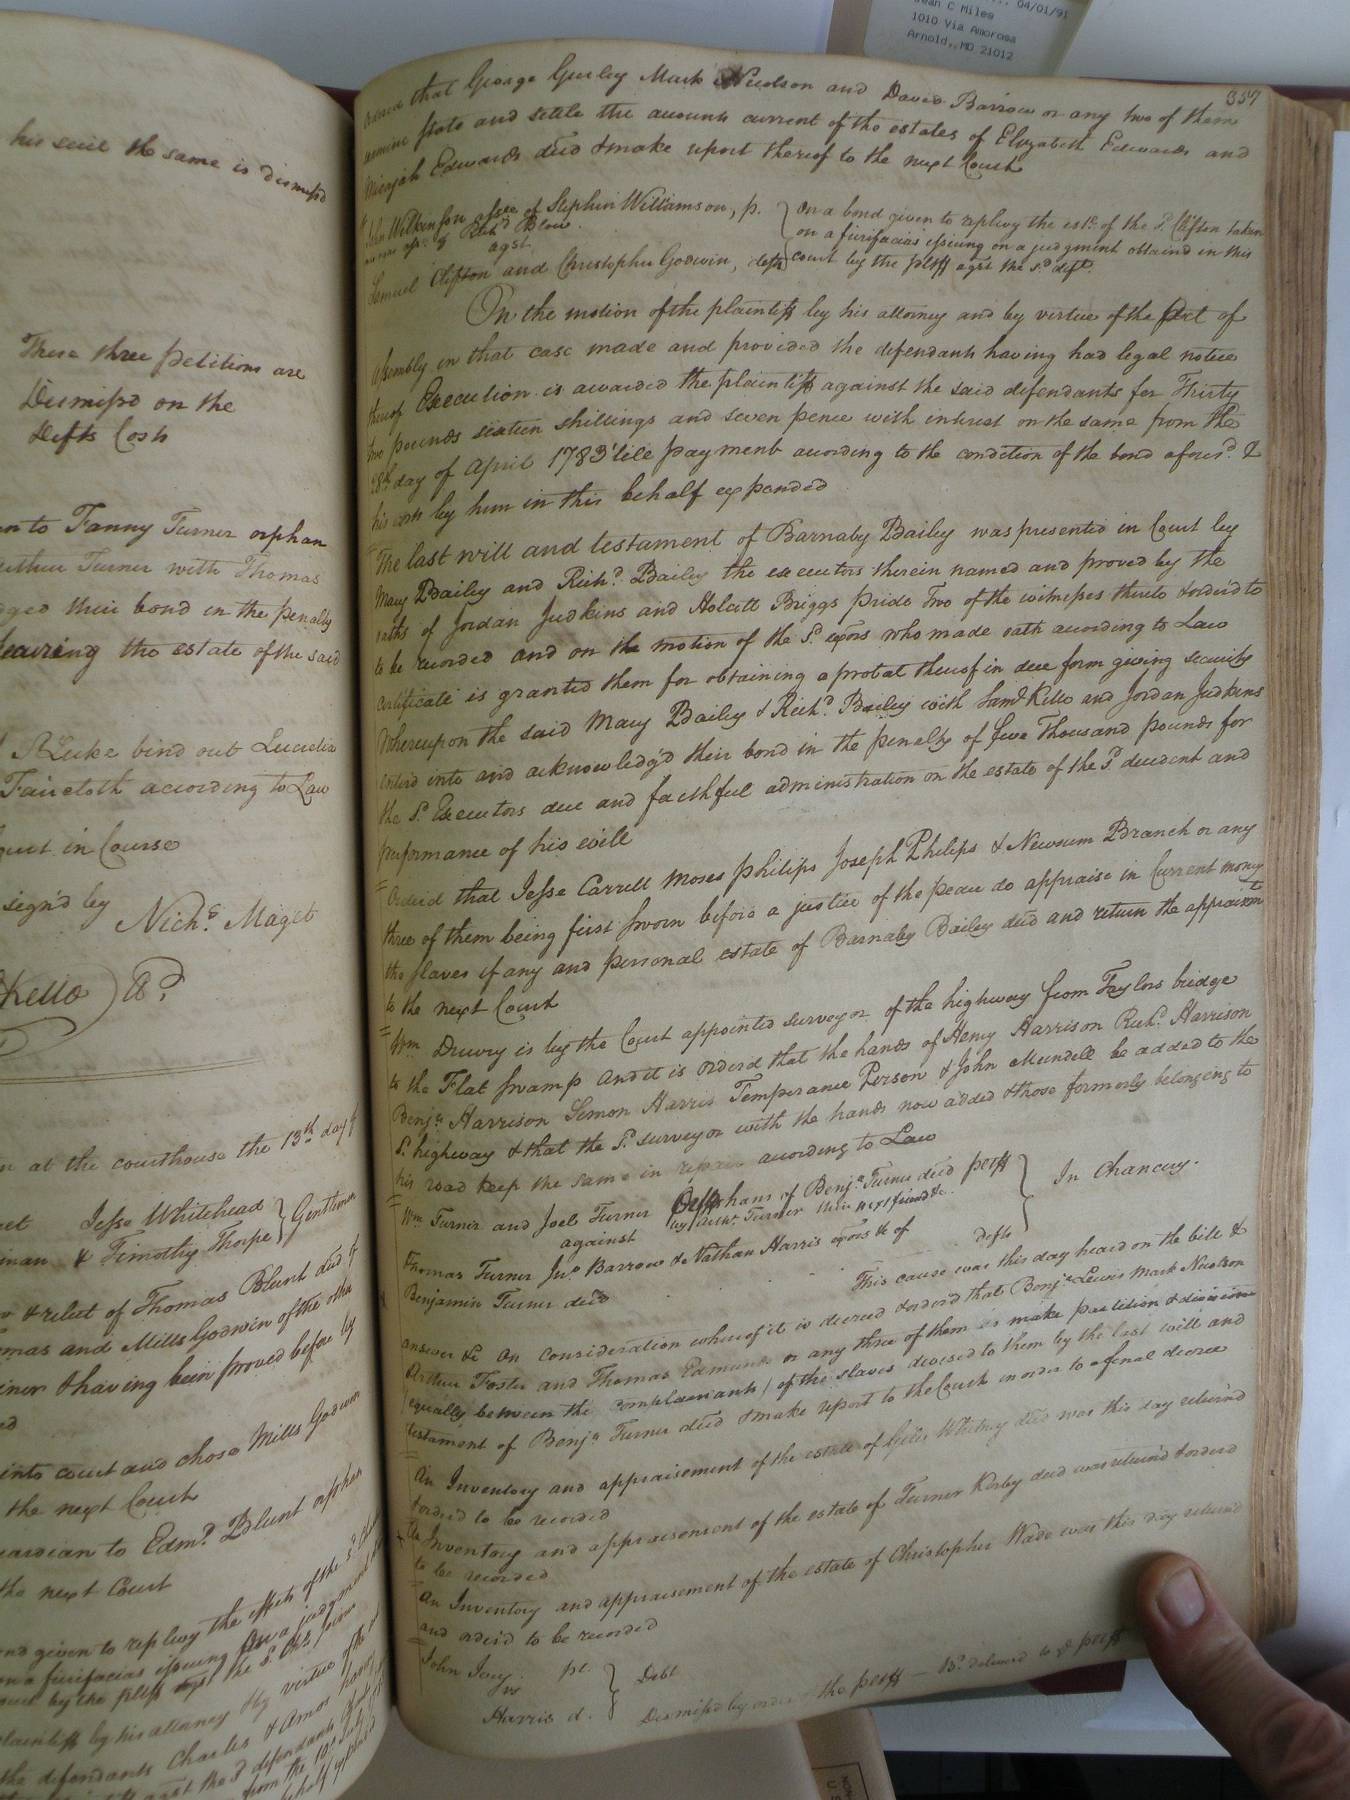 04/01/91
Jean C Miles
1010 Via Amorosa
Arnold, MD 21012
his suit the same is dismissd
These three petitions are
Dismissd on the
Defts Costs
to Fanny Turner orphan
Turner with Thomas
their bond in the penalty
securing the estate of the said
St Luke bind out Lucretia
Faircloth according to Law
in Course
sign'd by
Nichs Maget
Kello
at the courthouse the 13th day of
Jesse Whitehead
Gentlemen
& Timothy Thorpe
& relict of Thomas Blunt decd
and Mills Godwin of the other
& having been proved before by
into court and chose Mills Godwin
the next Court
guardian to Edmd Blunt orphan
the next Court
given to replevy the effects of the sd
on a fierifacias issuing on a judgment
by the pltff agst the sd
plaintiff by his attorney & by virtue of the
the defendants Charles & Amos having
the sd defendants
from the 10th
357
Orderd that George Gurley Mark Newsom and David Barrow or any two of them
examine state and settle the accounts current of the estates of Elizabeth Edwards and
Micajah Edwards decd & make report thereof to the next Court
John Wilkinson assee of Stephen Williamson, p.
who was asse of Richd Blow
agst
Samuel Clifton and Christopher Godwin, defts
on a bond given to replevy the este of the sd Clifton taken
on a fierifacias issuing on a judgment obtaind in this
court by the pltff agst the sd deft.
On the motion of the plaintiff by his attorney and by virtue of the Act of
Assembly in that case made and provided the defendants having had legal notice
thereof Execution is awarded the plaintiff against the said defendants for Thirty
two pounds sixteen shillings and seven pence with interest on the same from the
8th day of April 1783 till payment according to the condition of the bond aforesd &
his costs by him in this behalf expended
The last will and testament of Barnaby Bailey was presented in Court by
Mary Bailey and Richd Bailey the executors therein named and proved by the
oaths of Jordan Judkins and Holcott Briggs Pride two of the witnesses thereto & orderd to
to be recorded and on the motion of the sd exors who made oath according to Law
certificate is granted them for obtaining a probat thereof in due form giving security
Whereupon the said Mary Bailey & Richd Bailey with Saml Kello and Jordan Judkins
enterd into and acknowledg'd their bond in the penalty of five Thousand pounds for
the sd Executors due and faithful administration on the estate of the sd decedent and
performance of his will
Orderd that Jesse Carrell Moses Philips Joseph Philips & Newsum Branch or any
three of them being first sworn before a justice of the peace do appraise in Current money
the slaves if any and personal estate of Barnaby Bailey decd and return the appraismt
to the next Court
Wm Drewry is by the Court appointed surveyor of the highway from Taylors bridge
to the Flat swamp and it is orderd that the hands of Henry Harrison Richd Harrison
Benja Harrison Simon Harris Temperance Person & John Mundell be added to the
sd highway & that the sd surveyor with the hands now added & those formerly belonging to
his road keep the same in repair according to Law
Wm Turner and Joel Turner Orphans of Benja Turner decd pltff
by Turner their next friend &c.
against
Thomas Turner Jno Barrow & Nathan Harris exors &c of
Benjamin Turner decd
defts
In Chancery.
This cause was this day heard on the bill &
answer &c On consideration whereof it is decreed & orderd that Benja Lewis Mark Newsom
Arthur Foster and Thomas Edmunds or any three of them make partition & division
(equally between the complainants) of the slaves devised to them by the last will and
testament of Benja Turner decd & make report to the Court in order to a final decree
An Inventory and appraisement of the estate of Giles Whitney decd was this day returnd
& orderd to be recorded
An Inventory and appraisement of the estate of Turner Kirby decd was returnd & orderd
to be recorded
An Inventory and appraisement of the estate of Christopher Wade was this day returnd
and orderd to be recorded
John
pt.
vs
Harris d.
Debt
Dismissd by order of the pltff — Bd deliverd to ye pltff